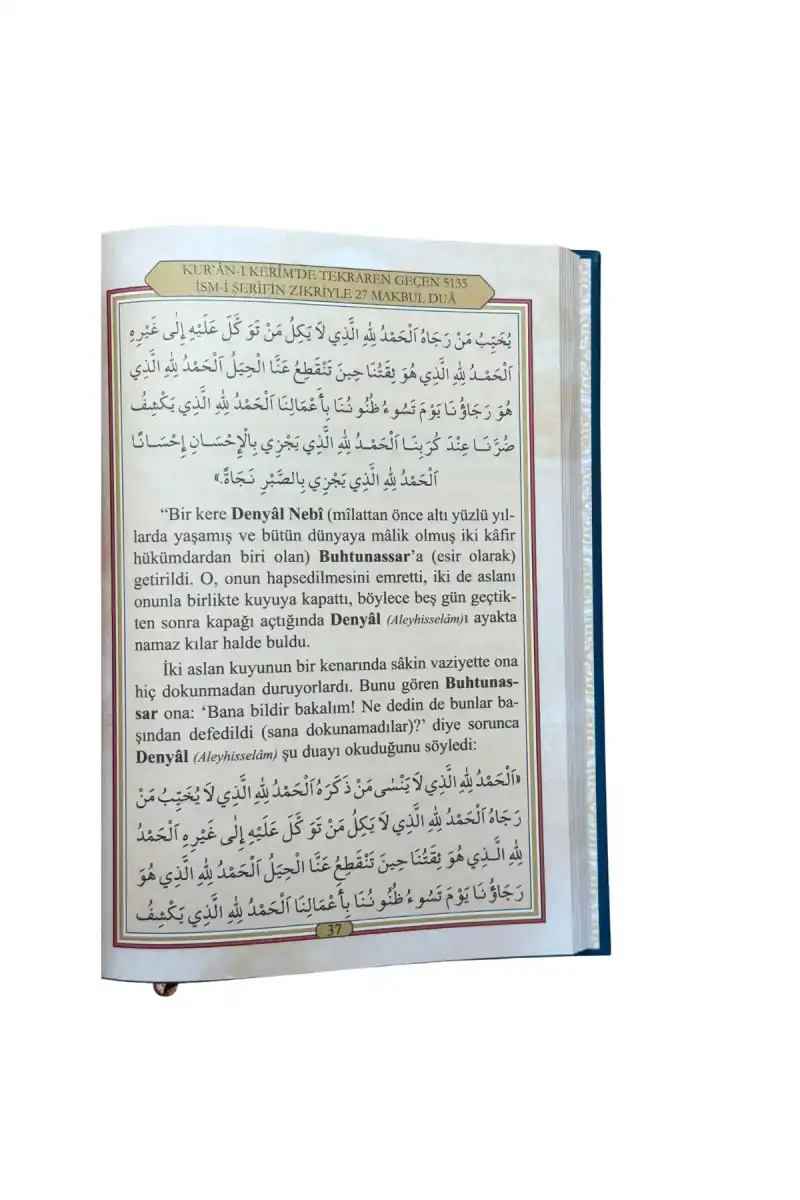 KUR'ÂN-I KERÎM'DE TEKRAREN GEÇEN 5135
İSM-İ ŞERİFİN ZİKRİYLE 27 MAKBUL DUÂ
يُخَيِّبُ مَنْ رَجَاهُ اَلْحَمْدُ لِلّٰهِ الَّذِي لَا يَكِلُ مَنْ تَوَكَّلَ عَلَيْهِ إِلٰى غَيْرِهِ
اَلْحَمْدُ لِلّٰهِ الَّذِي هُوَ ثِقَتُنَا حِينَ تَنْقَطِعُ عَنَّا الْحِيَلُ اَلْحَمْدُ لِلّٰهِ الَّذِي
هُوَ رَجَاؤُنَا يَوْمَ تَسُوءُ ظُنُونُنَا بِأَعْمَالِنَا اَلْحَمْدُ لِلّٰهِ الَّذِي يَكْشِفُ
ضُرَّنَا عِنْدَ كُرَبِنَا اَلْحَمْدُ لِلّٰهِ الَّذِي يَجْزِي بِالْإِحْسَانِ إِحْسَانًا
اَلْحَمْدُ لِلّٰهِ الَّذِي يَجْزِي بِالصَّبْرِ نَجَاةً.»
“Bir kere Denyâl Nebî (mîlattan önce altı yüzlü yıl-
larda yaşamış ve bütün dünyaya mâlik olmuş iki kâfir
hükümdardan biri olan) Buhtunassar’a (esir olarak)
getirildi. O, onun hapsedilmesini emretti, iki de aslanı
onunla birlikte kuyuya kapattı, böylece beş gün geçtik-
ten sonra kapağı açtığında Denyâl (Aleyhisselâm)ı ayakta
namaz kılar halde buldu.
İki aslan kuyunun bir kenarında sâkin vaziyette ona
hiç dokunmadan duruyorlardı. Bunu gören Buhtunas-
sar ona: ‘Bana bildir bakalım! Ne dedin de bunlar ba-
şından defedildi (sana dokunamadılar)?’ diye sorunca
Denyâl (Aleyhisselâm) şu duayı okuduğunu söyledi:
«اَلْحَمْدُ لِلّٰهِ الَّذِي لَا يَنْسٰى مَنْ ذَكَرَهُ اَلْحَمْدُ لِلّٰهِ الَّذِي لَا يُخَيِّبُ مَنْ
رَجَاهُ اَلْحَمْدُ لِلّٰهِ الَّذِي لَا يَكِلُ مَنْ تَوَكَّلَ عَلَيْهِ إِلٰى غَيْرِهِ اَلْحَمْدُ
لِلّٰهِ الَّذِي هُوَ ثِقَتُنَا حِينَ تَنْقَطِعُ عَنَّا الْحِيَلُ اَلْحَمْدُ لِلّٰهِ الَّذِي هُوَ
رَجَاؤُنَا يَوْمَ تَسُوءُ ظُنُونُنَا بِأَعْمَالِنَا اَلْحَمْدُ لِلّٰهِ الَّذِي يَكْشِفُ
37